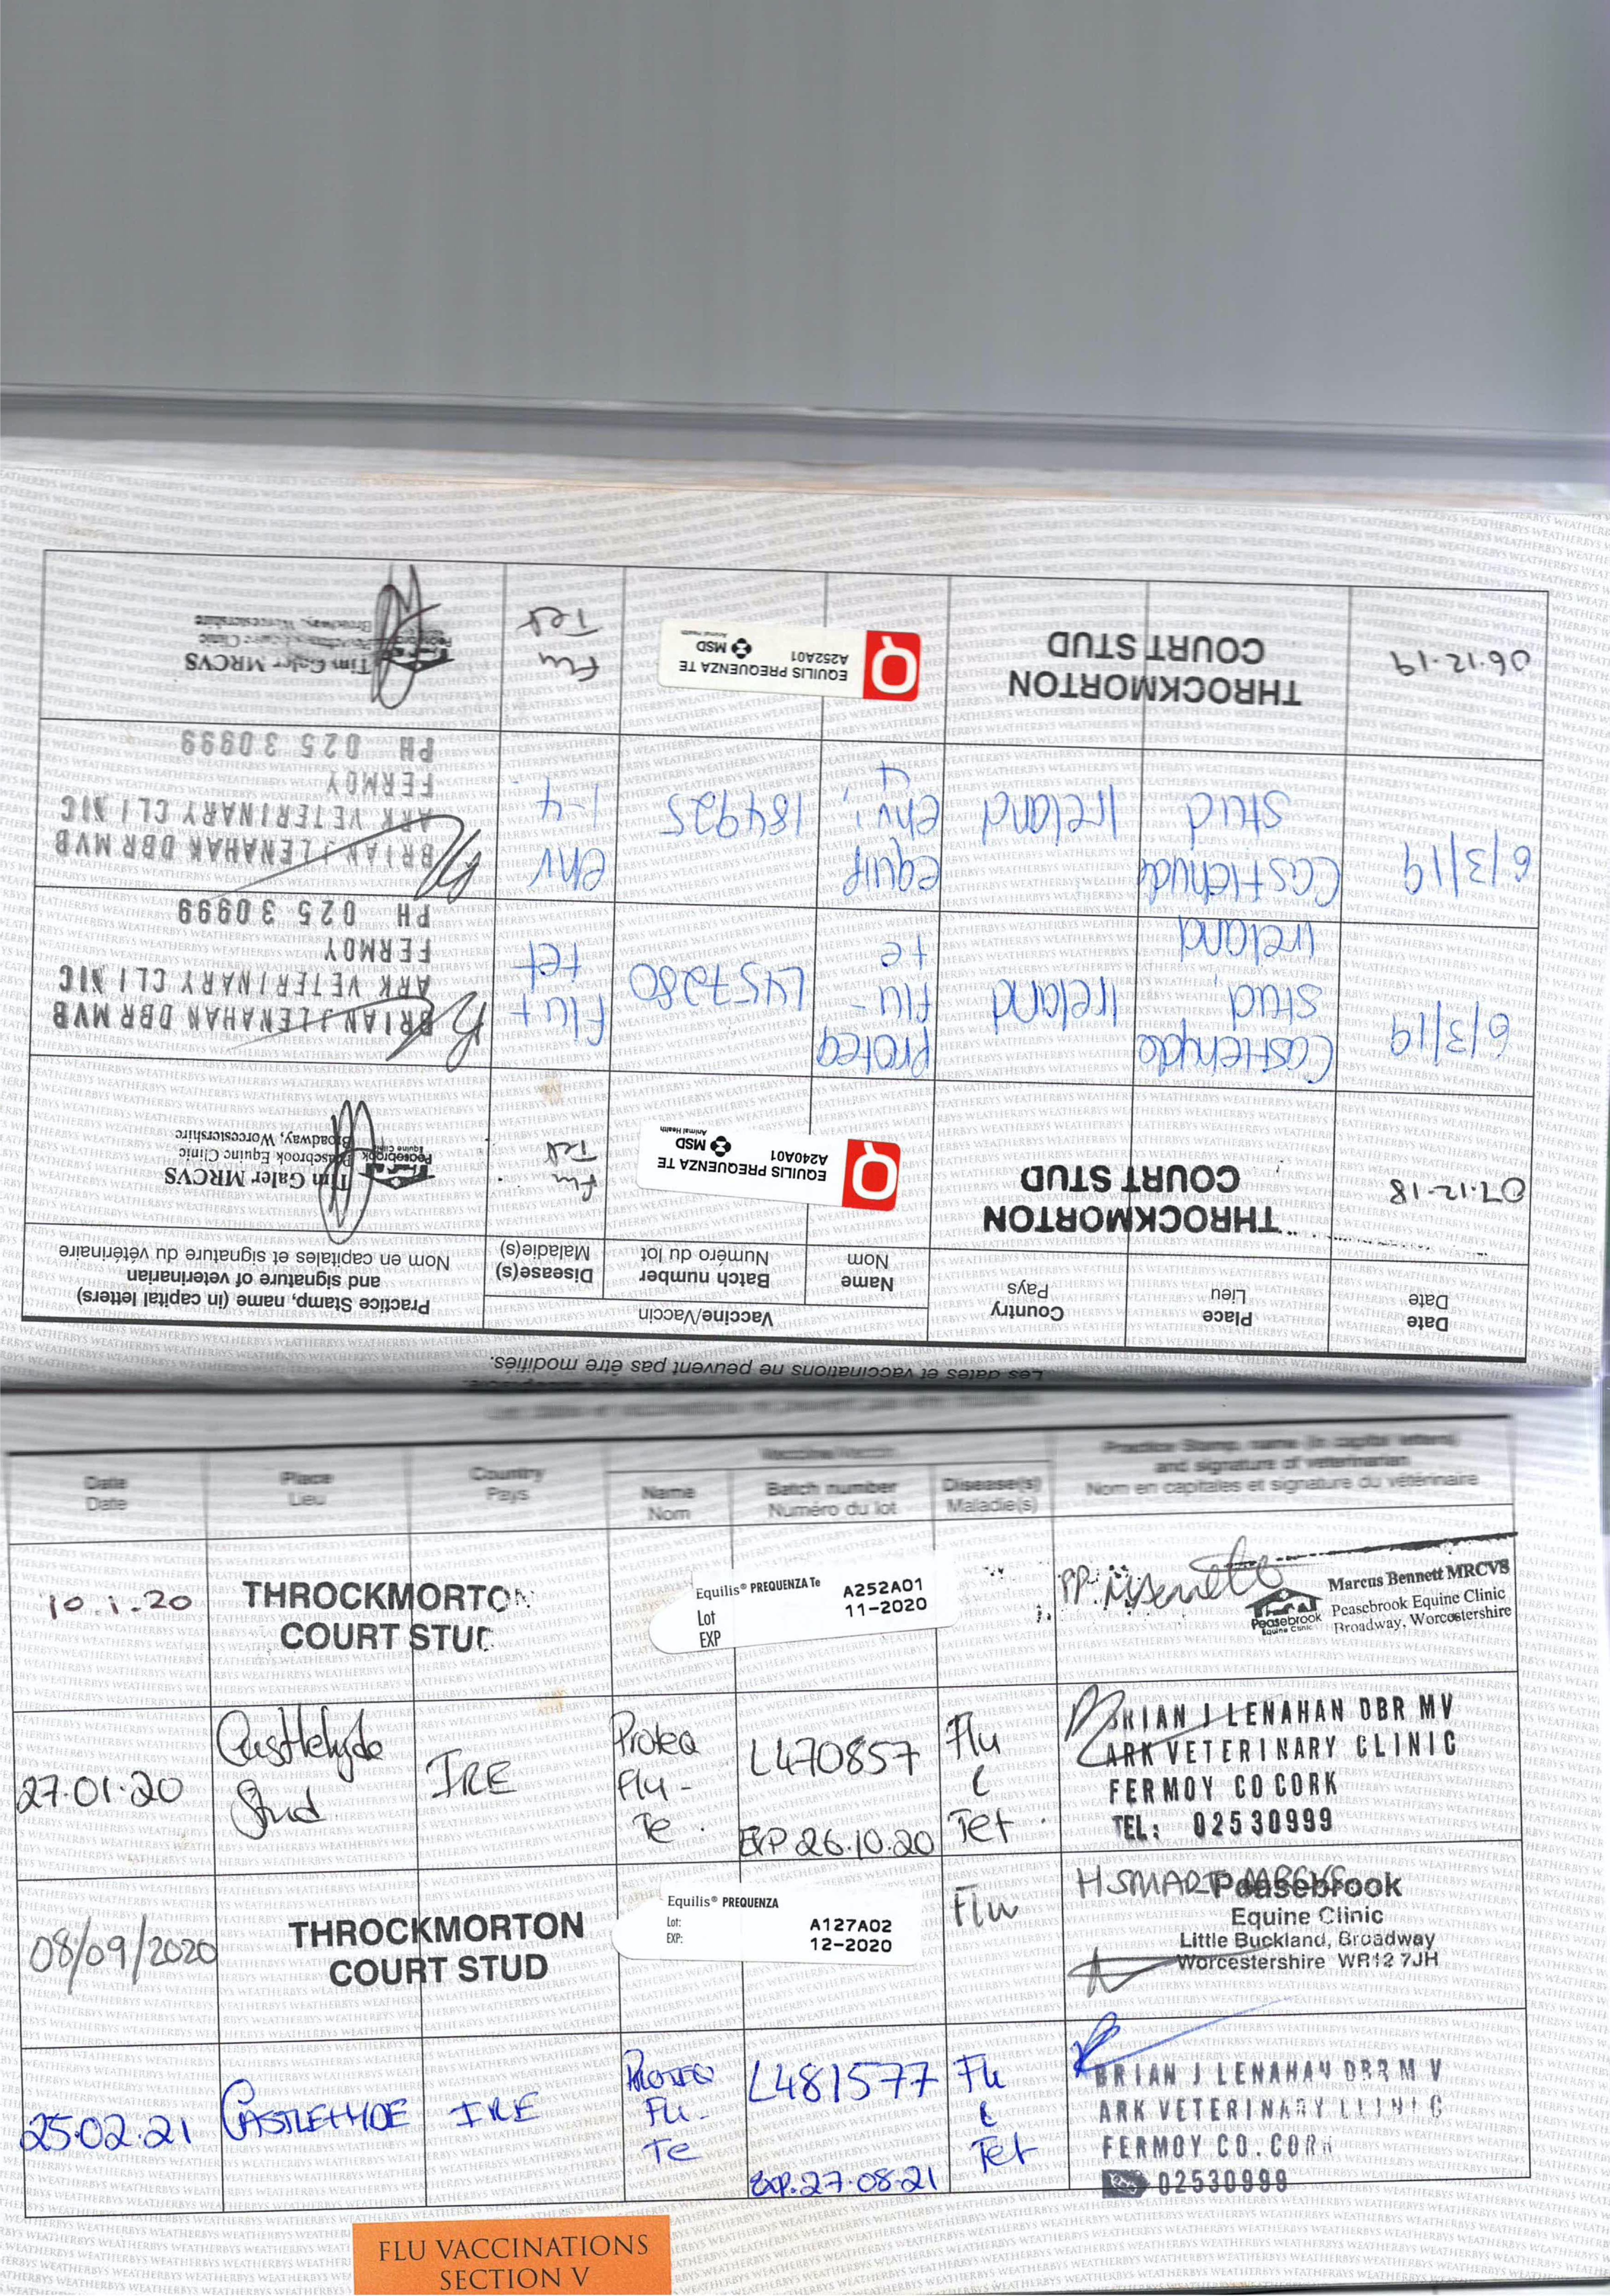 Les dates et vaccinations ne peuvent pas être modifiés.
Date
Date
Place
Lieu
Country
Pays
Vaccine/Vaccin
Name
Nom
Batch number
Numéro du lot
Disease(s)
Maladie(s)
Practice Stamp, name (in capital letters)
and signature of veterinarian
Nom en capitales et signature du vétérinaire
07.12.18
THROCKMORTON
COURT STUD
EQUILIS PREQUENZA TE
A240A01
MSD
Animal Health
Flu
Tet
Tim Galer MRCVS
Peasebrook Equine Clinic
Broadway, Worcestershire
Peasebrook
Equine Clinic
6/3/19
Castlehyde
Stud,
Ireland
Ireland
Proteq
flu-
te
L457280
flu +
tet
BRIAN J LENAHAN DBR MVB
ARK VETERINARY CLINIC
FERMOY
PH 025 30999
6/3/19
Castlehyde
Stud
Ireland
equip
ehv 1,
4
184925
ehv
1-4
BRIAN J LENAHAN DBR MVB
ARK VETERINARY CLINIC
FERMOY
PH 025 30999
06.12.19
THROCKMORTON
COURT STUD
EQUILIS PREQUENZA TE
A252A01
MSD
Animal Health
Flu
Tet
Tim Galer MRCVS
Peasebrook Equine Clinic
Broadway, Worcestershire
Date
Date
Place
Lieu
Country
Pays
Vaccine/Vaccin
Name
Nom
Batch number
Numéro du lot
Disease(s)
Maladie(s)
Practice Stamp, name (in capital letters)
and signature of veterinarian
Nom en capitales et signature du vétérinaire
10.1.20
THROCKMORTON
COURT STUD
Equilis® PREQUENZA Te
Lot A252A01
EXP 11-2020
PP. MBennett
Marcus Bennett MRCVS
Peasebrook Equine Clinic
Broadway, Worcestershire
Peasebrook
Equine Clinic
27.01.20
Castlehyde
Stud
IRE
Proteq
Flu-
Te
L470857
EXP 26.10.20
Flu
&
Tet
BRIAN J LENAHAN DBR MV
ARK VETERINARY CLINIC
FERMOY CO CORK
TEL: 02530999
08/09/2020
THROCKMORTON
COURT STUD
Equilis® PREQUENZA
Lot: A127A02
EXP: 12-2020
Flu
H SMART MRCVS
Peasebrook
Equine Clinic
Little Buckland, Broadway
Worcestershire WR12 7JH
25.02.21
CASTLEHYDE
IRE
PROTEQ
FLU-
TE
L481577
EXP. 27.08.21
Flu
&
Tet
BRIAN J LENAHAN DBR M V
ARK VETERINARY CLINIC
FERMOY CO. CORK
02530999
FLU VACCINATIONS
SECTION V